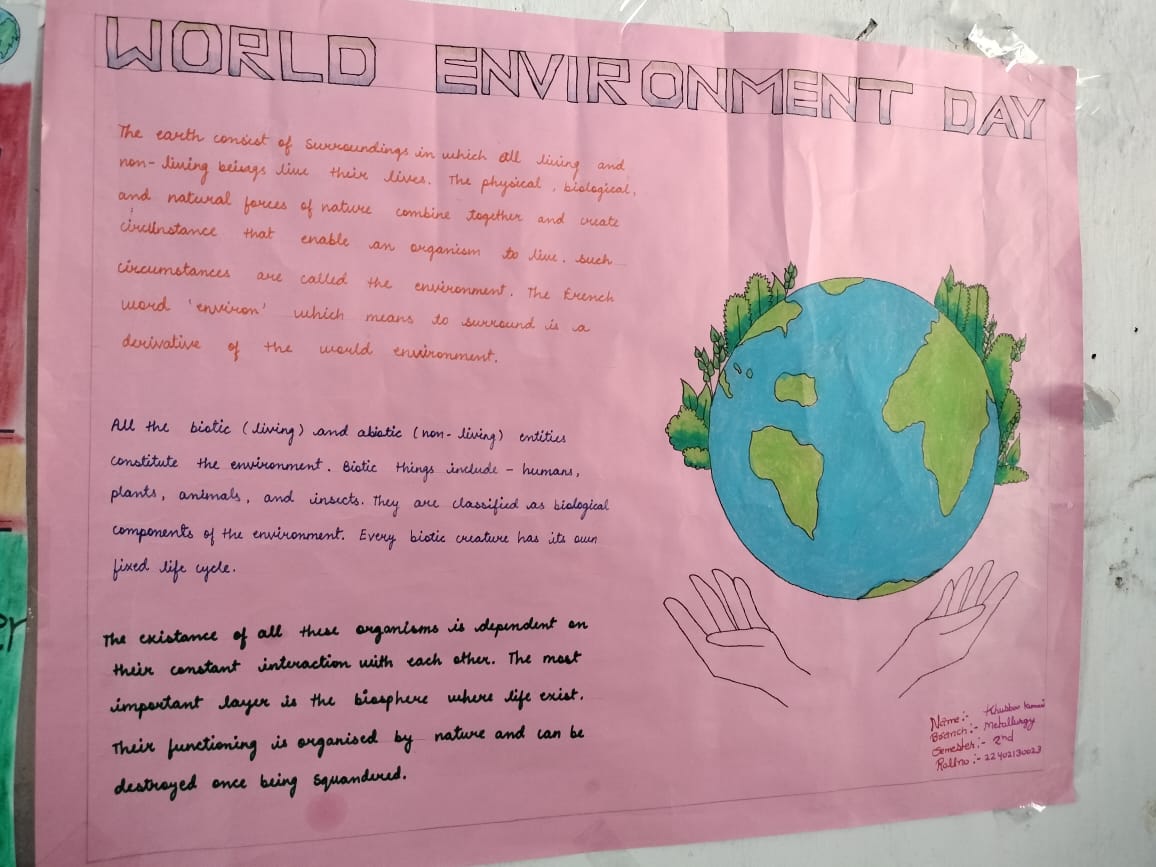 WORLD ENVIRONMENT DAY
The earth consist of surroundings in which all living and
non-living beings live their lives. The physical, biological,
and natural forces of nature combine together and create
circumstance that enable an organism to live. such
circumstances are called the environment. The French
word 'environ' which means to surround is a
derivative of the world environment.
All the biotic (living) and abiotic (non-living) entities
constitute the environment. Biotic things include - humans,
plants, animals, and insects. They are classified as biological
components of the environment. Every biotic creature has its own
fixed life cycle.
The existance of all these organisms is dependent on
their constant interaction with each other. The most
important layer is the biosphere where life exist.
Their functioning is organised by nature and can be
destroyed once being squandered.
Name:- Khushboo Kumari
Branch:- Metallurgy
Semester:- 2nd
Rollno:- 22402130023
er